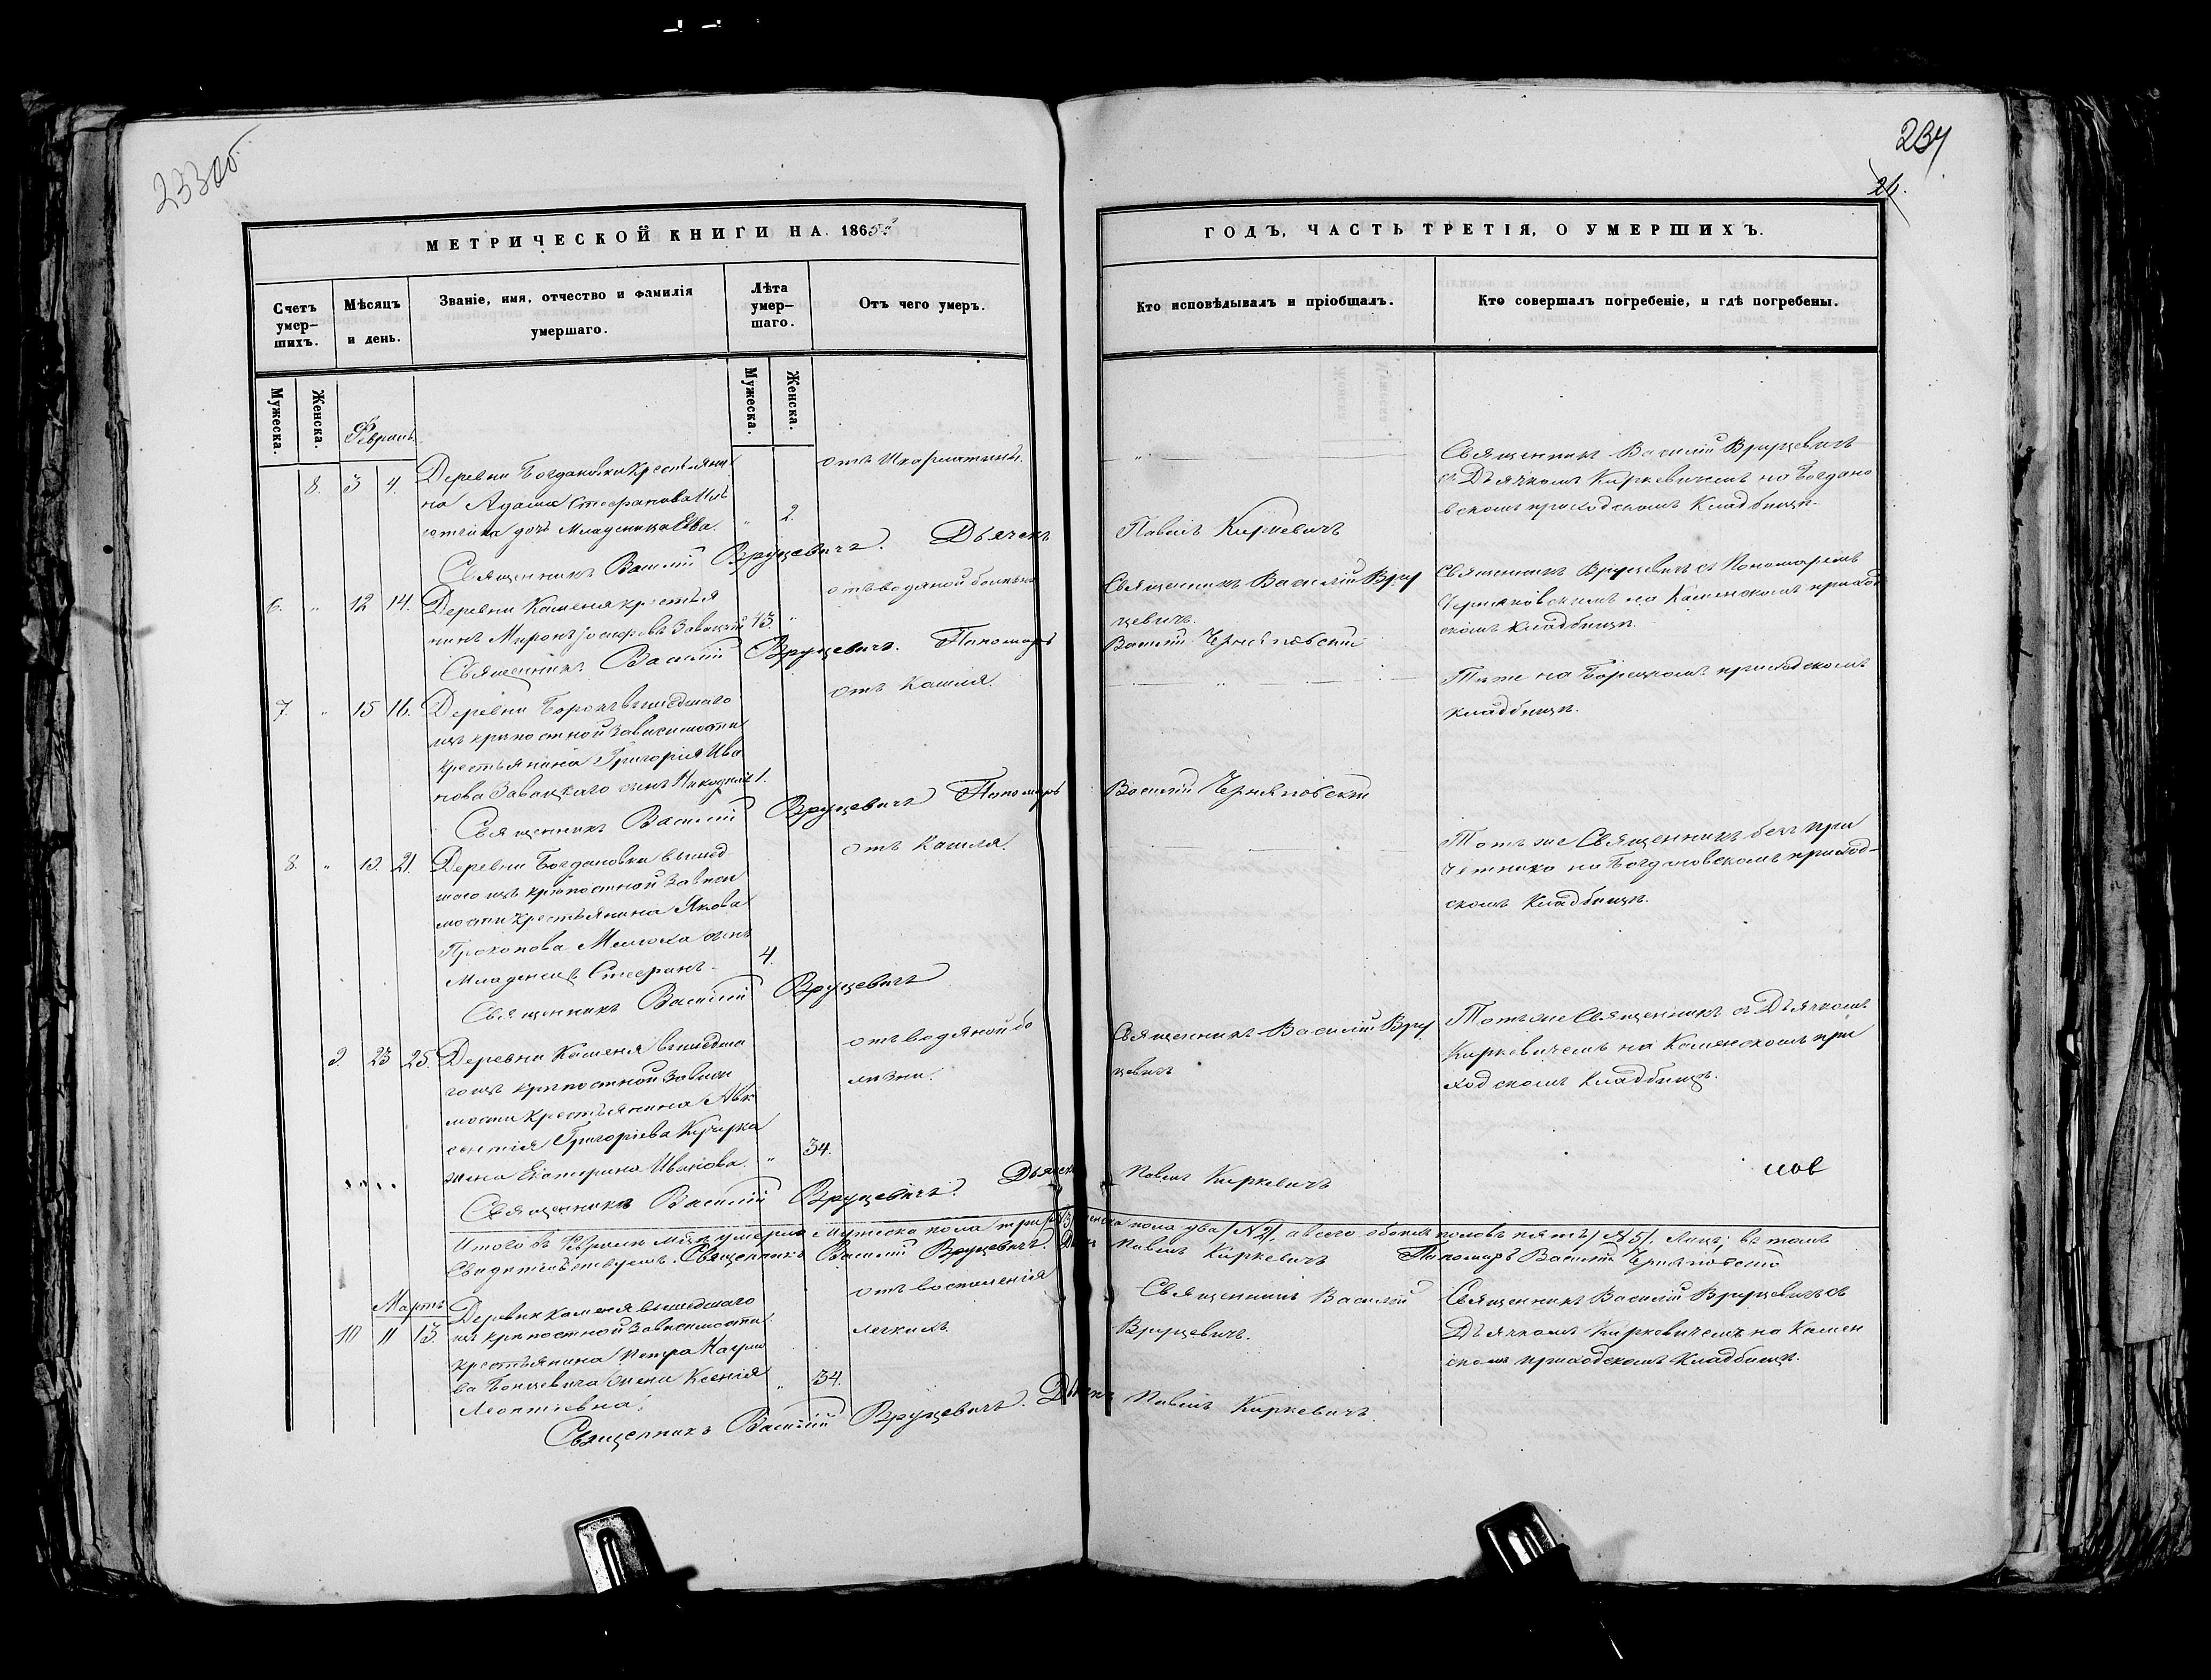 233об
234
26.
МЕТРИЧЕСКОЙ КНИГИ НА 1865й
ГОДЪ, ЧАСТЬ ТРЕТІЯ, О УМЕРШИХЪ.
Счетъ умер-шихъ.
Мѣсяцъ и день.
Званіе, имя, отчество и фамилія умершаго.
Лѣта умер-шаго.
Отъ чего умеръ.
Кто исповѣдывалъ и пріобщалъ.
Кто совершалъ погребеніе, и гдѣ погребены.
Мужеска.
Женска.
Мужеска.
Женска.
Февраль
8. 3 4. Деревни Богдановки крестьяни
на Адама Стефанова
дочь Младеница Ева. " 2.
отъ
Священникъ Василій Вруцевичъ
съ Дьячкомъ Киркевичемъ на Богдано
вскомъ приходскомъ Кладбищѣ.
Священникъ Василій Вруцевичъ. Дьячекъ Павелъ Киркевичъ
6. " 12 14. Деревни Каменя крестья
нинъ Миронъ Іосифовъ Завацкій 43 "
отъ водяной болѣзни
Священникъ Василій Вру
цевичъ.
Священникъ Вруцевичъ съ Пономаремъ
Черняковскимъ на Каменскомъ приход
скомъ кладбищѣ.
Священникъ Василій Вруцевичъ. Пономарь Василій Черняковскій
7. " 15 16. Деревни Борокъ вышедшаго
изъ крѣпостной зависимости
крестьянина Григорія Ива
нова Завацкаго сынъ Никодимъ 1.
отъ Кашля.
Тѣ же на Борецкомъ приходскомъ
кладбищѣ.
Священникъ Василій Вруцевичъ Пономарь Василій Черняковскій
8. " 19. 21. Деревни Богдановки вышед-
шаго изъ крѣпостной зависи
мости крестьянина Якова
Прокопова сынъ
Младенецъ Стефанъ 4.
отъ Кашля.
Тотъ же Священникъ безъ при
четника на Богдановскомъ приход-
скомъ Кладбищѣ.
Священникъ Василій Вруцевичъ
9. 23 25. Деревни Каменя вышедша
го изъ крѣпостной зависи
мости крестьянина Авк
сентія Григоріева Кучерка
жена Екатерина Иванова. " 34.
отъ водяной бо
лѣзни.
Священникъ Василій Вру
цевичъ
Тотъ же Священникъ съ Дьячкомъ
Киркевичемъ на Каменскомъ при
ходскомъ Кладбищѣ.
Священникъ Василій Вруцевичъ. Дьячекъ Павелъ Киркевичъ
Итого въ Февралѣ м-цѣ умерло Мужеска пола три /№3/ женска пола два /№2/, а всего обоихъ половъ пять /№5/. лицъ; въ томъ
Свидѣтельствуемъ. Священникъ Василій Вруцевичъ. Дьячекъ Павелъ Киркевичъ Пономарь Василій Черняковскій
Мартъ
10 11 13. Деревни Каменя вышедшаго
изъ крѣпостной зависимости
крестьянина Петра Наумо
ва Бонцевича жена Ксенія
Леонтіевна. " 34.
отъ воспаленія
легкихъ.
Священникъ Василій
Вруцевичъ.
Священникъ Василій Вруцевичъ съ
Дьячкомъ Киркевичемъ на Камен
скомъ приходскомъ Кладбищѣ.
Священникъ Василій Вруцевичъ. Дьячекъ Павелъ Киркевичъ.